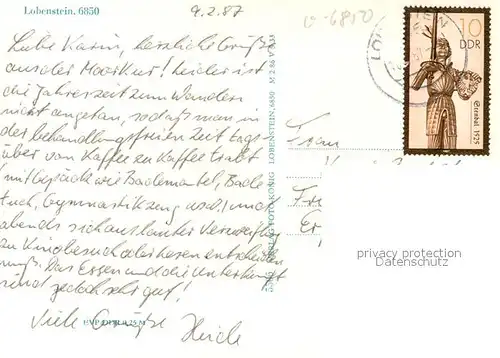 Lobenstein, 6850
9.2.87
v-6850
Liebe Karin, herzliche Grüße
aus der Moorkur! Leider ist
die Jahreszeit zum Wandern
nicht angetan, so daß man in
der behandlungsfreien Zeit tags-
über von Kaffee zu Kaffee trabt
mit Gepäck wie Bademantel, Bade
tuch, Gymnastikzeug usw. und
abends sich aus lauter Verzweiflg
zu Kinobesuch oder lesen entscheiden
muß. Das Essen und die Unterkunft
sind jedoch sehr gut!
Viele Grüße Heide
EVP
LOBENSTEIN, 6850
KÖNIG
Frau
10
DDR
Stendal 1525
privacy protection
Datenschutz